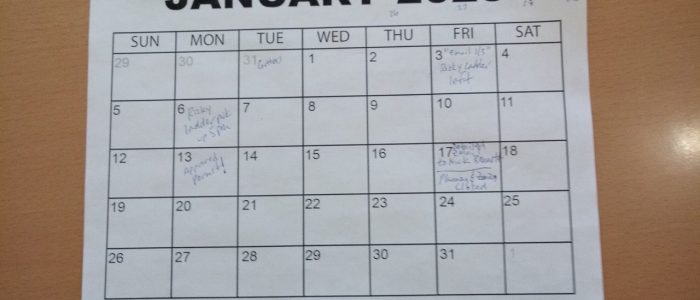 JANUARY
SUN MON TUE WED THU FRI SAT
29 30 31 1 2 3 "Email 1/3" 4
Risky Ladder
left
5 6 Risky 7 8 9 10 11
ladder pick
up 5pm
12 13 14 15 16 17 18
Approved
permit!
to Nick
Planning & Zoning
Closed
19 20 21 22 23 24 25
26 27 28 29 30 31 1